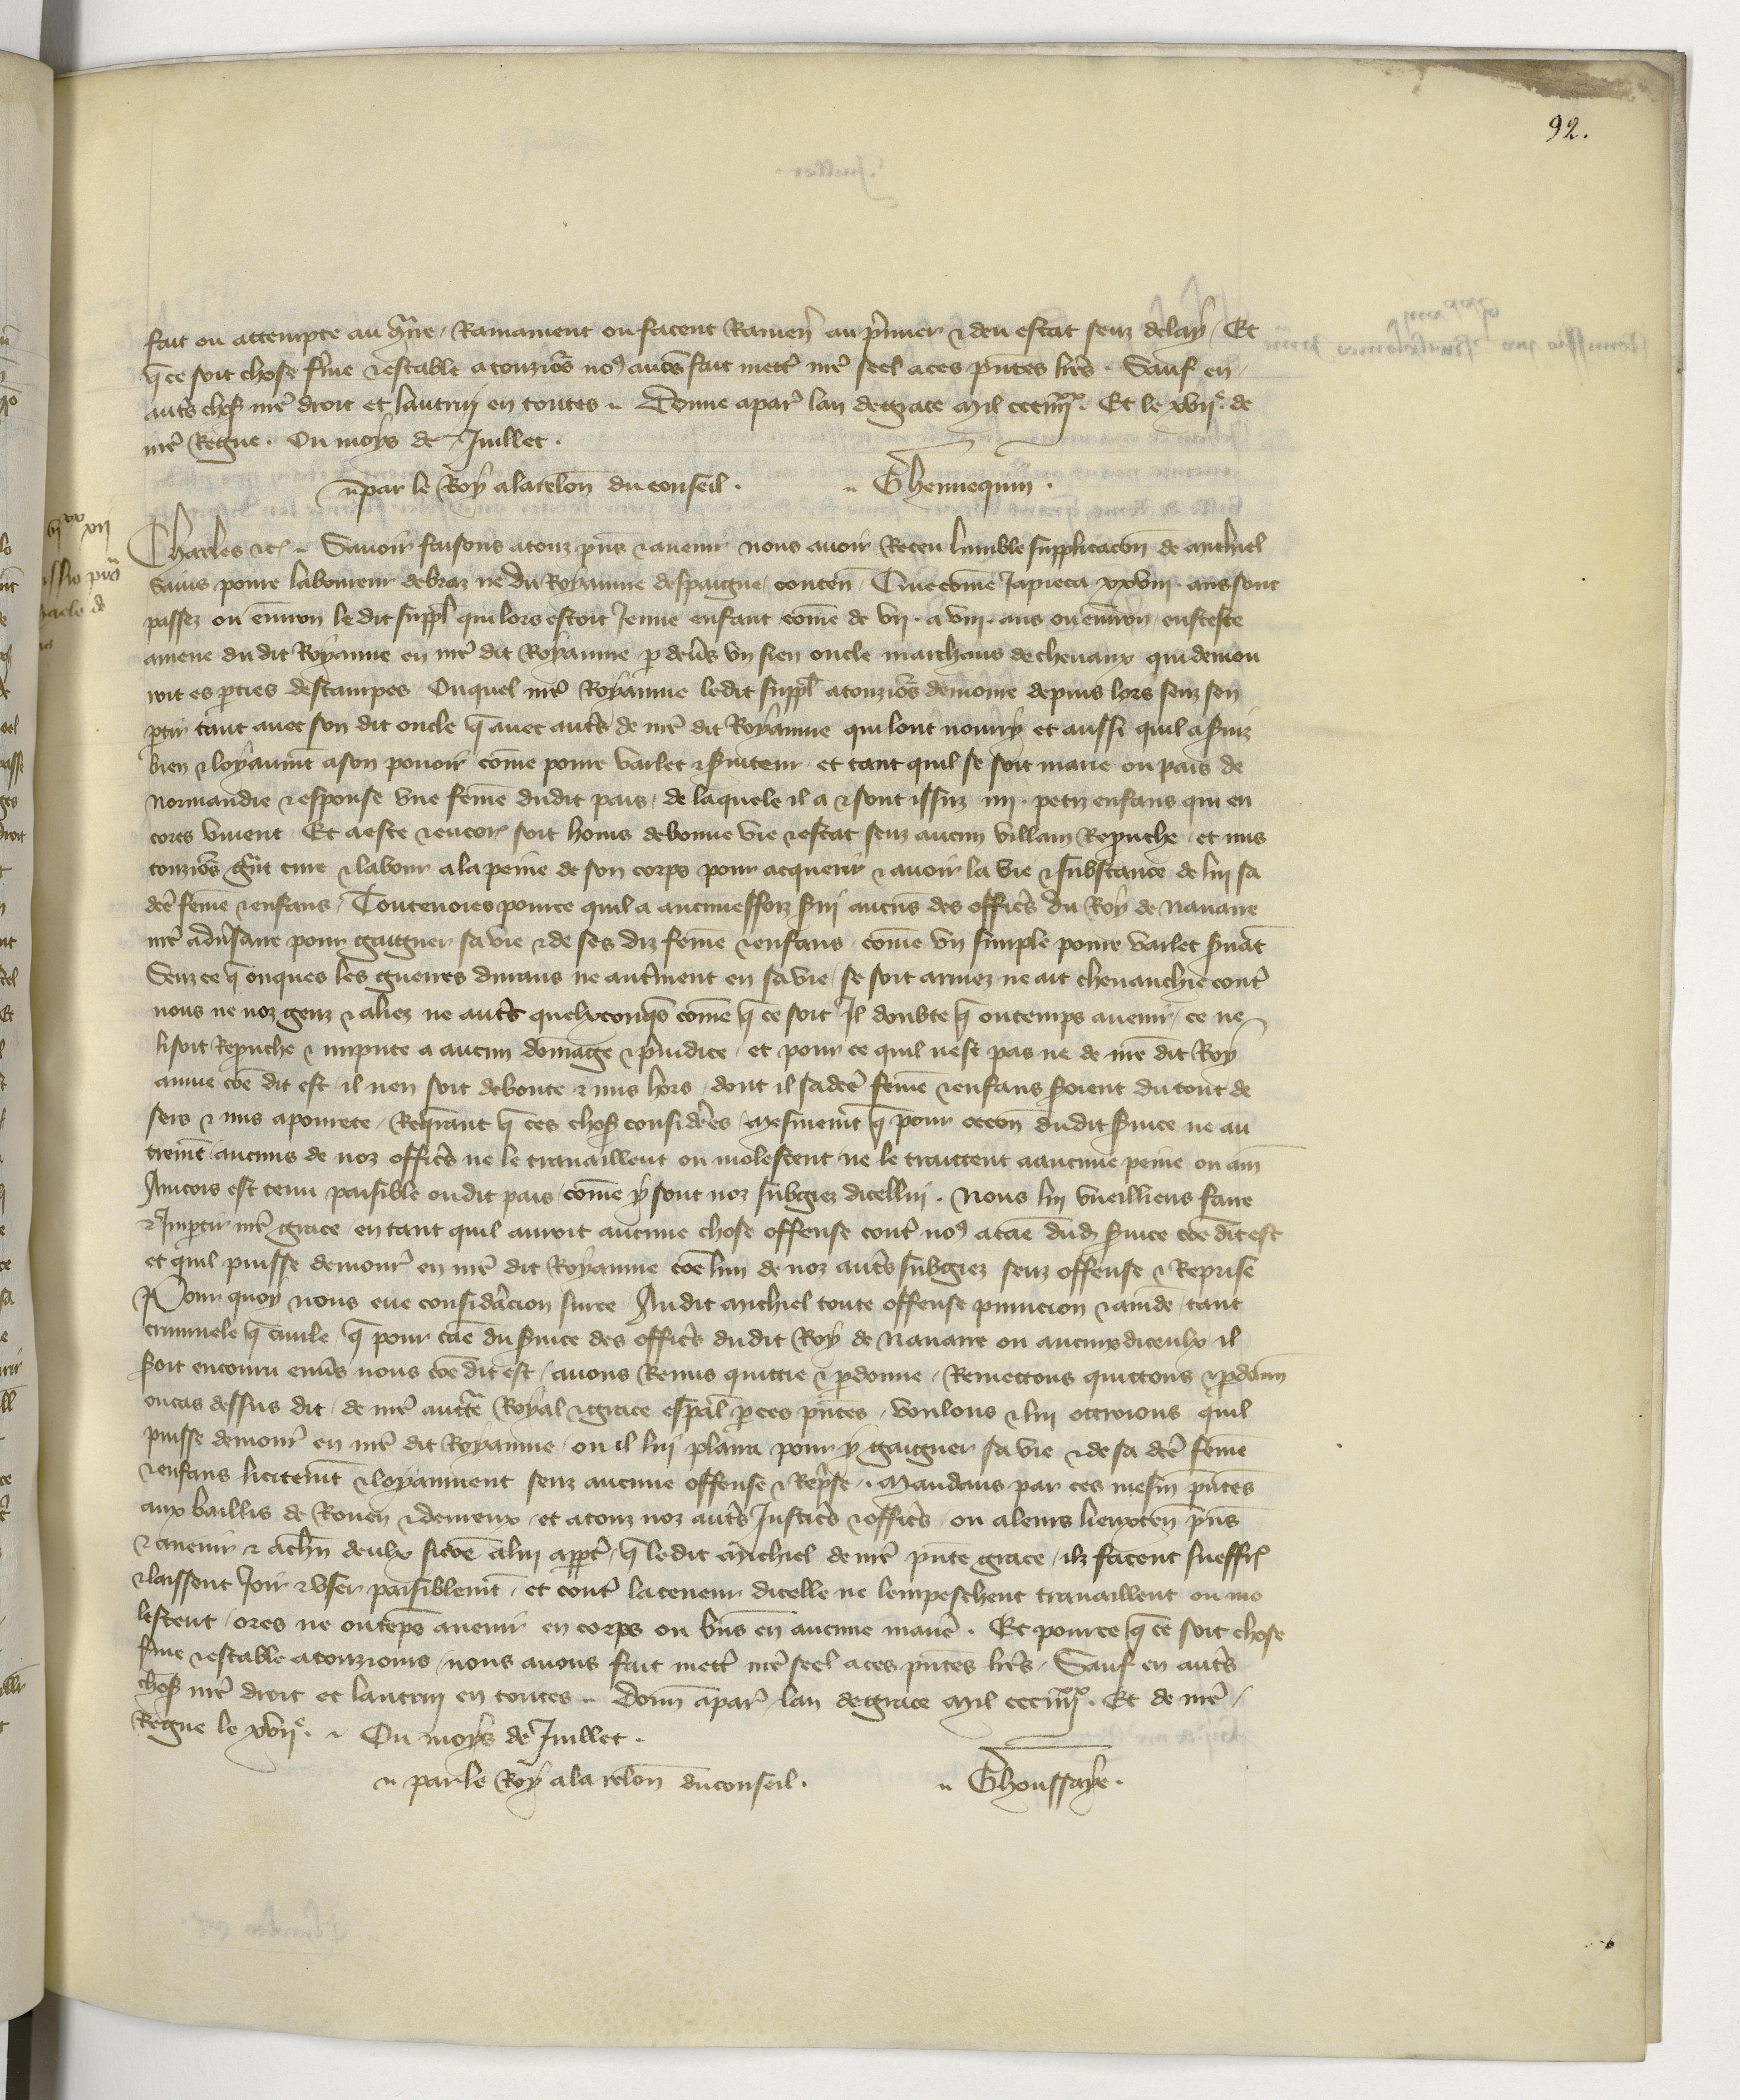 92.
fait ou attempte au cont̃re / Ramainent ou facent Ramen̄ au p̃mier & deu estat senz delay / Et
q̃ ce soit chose f̃me & estable a touzio᷒s no᷒ auõs fait mett̃ nr̃e seel a ces p̃ntes lr̃es . Sauf en
aut̃s chos̃ nr̃e droit et lautruy en toutes . Donne a par̃ lan de grace mil ccciiiixx . Et le xviie . de
nr̃e Regne . Ou moys de Juillet .
par le Roy a la relon̄ du conseil . Ghennequin .
Charles &c̃ . Sauoir faisons a touz p̃ns & auenir nous auoir Receu lumble supplicacõn de michiel
poure laboureur de braz ne du Royaume despaigne / conten̄ / Que cõme Ja pieca xxviii . ans sont
passez ou enuiron le dit suppl̃ qui lors estoit Jeune enfant cõme de vii . a viii . ans ou enuiron / eust este
amene du dit Royaume en nr̃e dit Royaume p deũs vn sien oncle marchans de cheuaux qui demou
roit es p̃ties destampes / Ouquel nr̃e Royaume ledit suppl̃ a touzio᷒s demoure depuis lors senz sen
p̃tir tant auec son dit oncle q̃ auec aut̃s de nr̃e dit Royaume qui lont nourry et aussi quil a s̃uiz
bien & loyaum̃t a son pouoir cõme poure varlet & s̃uiteur et tant quil se soit marie ou pais de
Normandie & espouse vne fem̃e dudit pais / de laquele il a & sont issuz iiii . petiz enfans qui en
cores viuent Et a este & encor̃ soit homs de bonne vie & estat senz aucun villain Reprouche / et mis
touzio᷒s gr̃nt cure & labour a la peine de son corps pour acquerir & auoir la vie & substance de lui sa
dc̃e fem̃e & enfans / Toutevoies pource quil a aucunesfoiz s̃ui aucũs des offic̃rs du Roy de Nauarre
nr̃e adũsaire pour gaigner sa vie & de ses diz fem̃e & enfans / cõme vn simple poure varlet s̃uãt
Senz ce q̃ onques les guerres durans ne aut̃ment en sa vie / se soit armez ne ait cheuauchie cont̃
nous ne noz genz & aliez ne aut̃s quelxconq̃s cõme q̃ ce soit Il doubte q̃ ou temps auenir / ce ne
li soit Reprouche & impute a aucun dõmage & p̃iudice / et pour ce quil nest pas ne de nr̃e dit Roy
aume cõe dit est / il nen soit deboute & mis hors / dont il sa dc̃e fem̃e & enfans s̃oient du tout de
sers & mis a pourete / Req̃rant q̃ ces chos̃ consider̃es / Mesmem̃t q̃ pour occõn dudit s̃uice ne au
trem̃t / aucuns de noz offic̃rs ne le trauaillent ou molestent ne le traittent a aucune peine ou am̄
Aincois est tenu paisible oudit pais cõme y sont noz subgiez dicellui . Nous lui vueilliens faire
& Imp̃tir nr̃e grace / en tant quil auroit aucune chose offense cont̃ no᷒ a cãe dud̃ s̃uice cõe dit est
et quil puisse demour̃ en nr̃e dit Royaume cõe lun de noz aut̃s subgiez senz offense & Reprise
Pour quoy nous eue considãcion sur ce Audit michiel toute offense punicion & amẽde / tant
criminele q̃ ciuile / q̃ pour cãe du s̃uice des offic̃rs dudit Roy de Nauarre ou aucuns diceulx il
soit encouru enũs nous cõe dit est / auons Remis quittie & p̃donne / Remettons quittons & p̃dõnn
ou cas dessus dit / de nr̃e auct̃e Royal & grace esp̃al p ces p̃ntes / voulons & lui octroions quil
puisse demour̃ en nr̃e dit Royaume / ou il lui plaira pour y gaigner sa vie & de sa dc̃e fem̃e
& enfans licitem̃t & loyaument senz aucune offense & Rep̃se . Mandans par ces mesm̃ p̃ntes
aux baillis de Rouen & deureux et a touz noz aut̃s Justic̃rs & offic̃rs ou a leurs lieuxten̄ p̃ns
& auenir & a ch̃n deulx si cõe a lui app̃t / q̃ ledit michiel de nr̃e p̃nte grace / ilz facent sueffr̃
& laissent Joir & vser paisiblem̃t / et cont̃ la teneur dicelle ne lempeschent trauaillent ou mo
lestent / ores ne ou tẽps auenir en corps ou biẽs en aucune manir̃e . Et pource q̃ ce soit chose
f̃me & estable a touziours / nous auons fait mett̃ nr̃e seel a ces p̃ntes lr̃es / Sauf en aut̃s
chos̃ nr̃e droit et lautruy en toutes . Donn̄ a par̃ lan de grace mil ccciiiixx . Et de nr̃e /
Regne le xviie . Ou moys de Juillet .
par le Roy a la relon̄ du conseil . Ghoussaye .